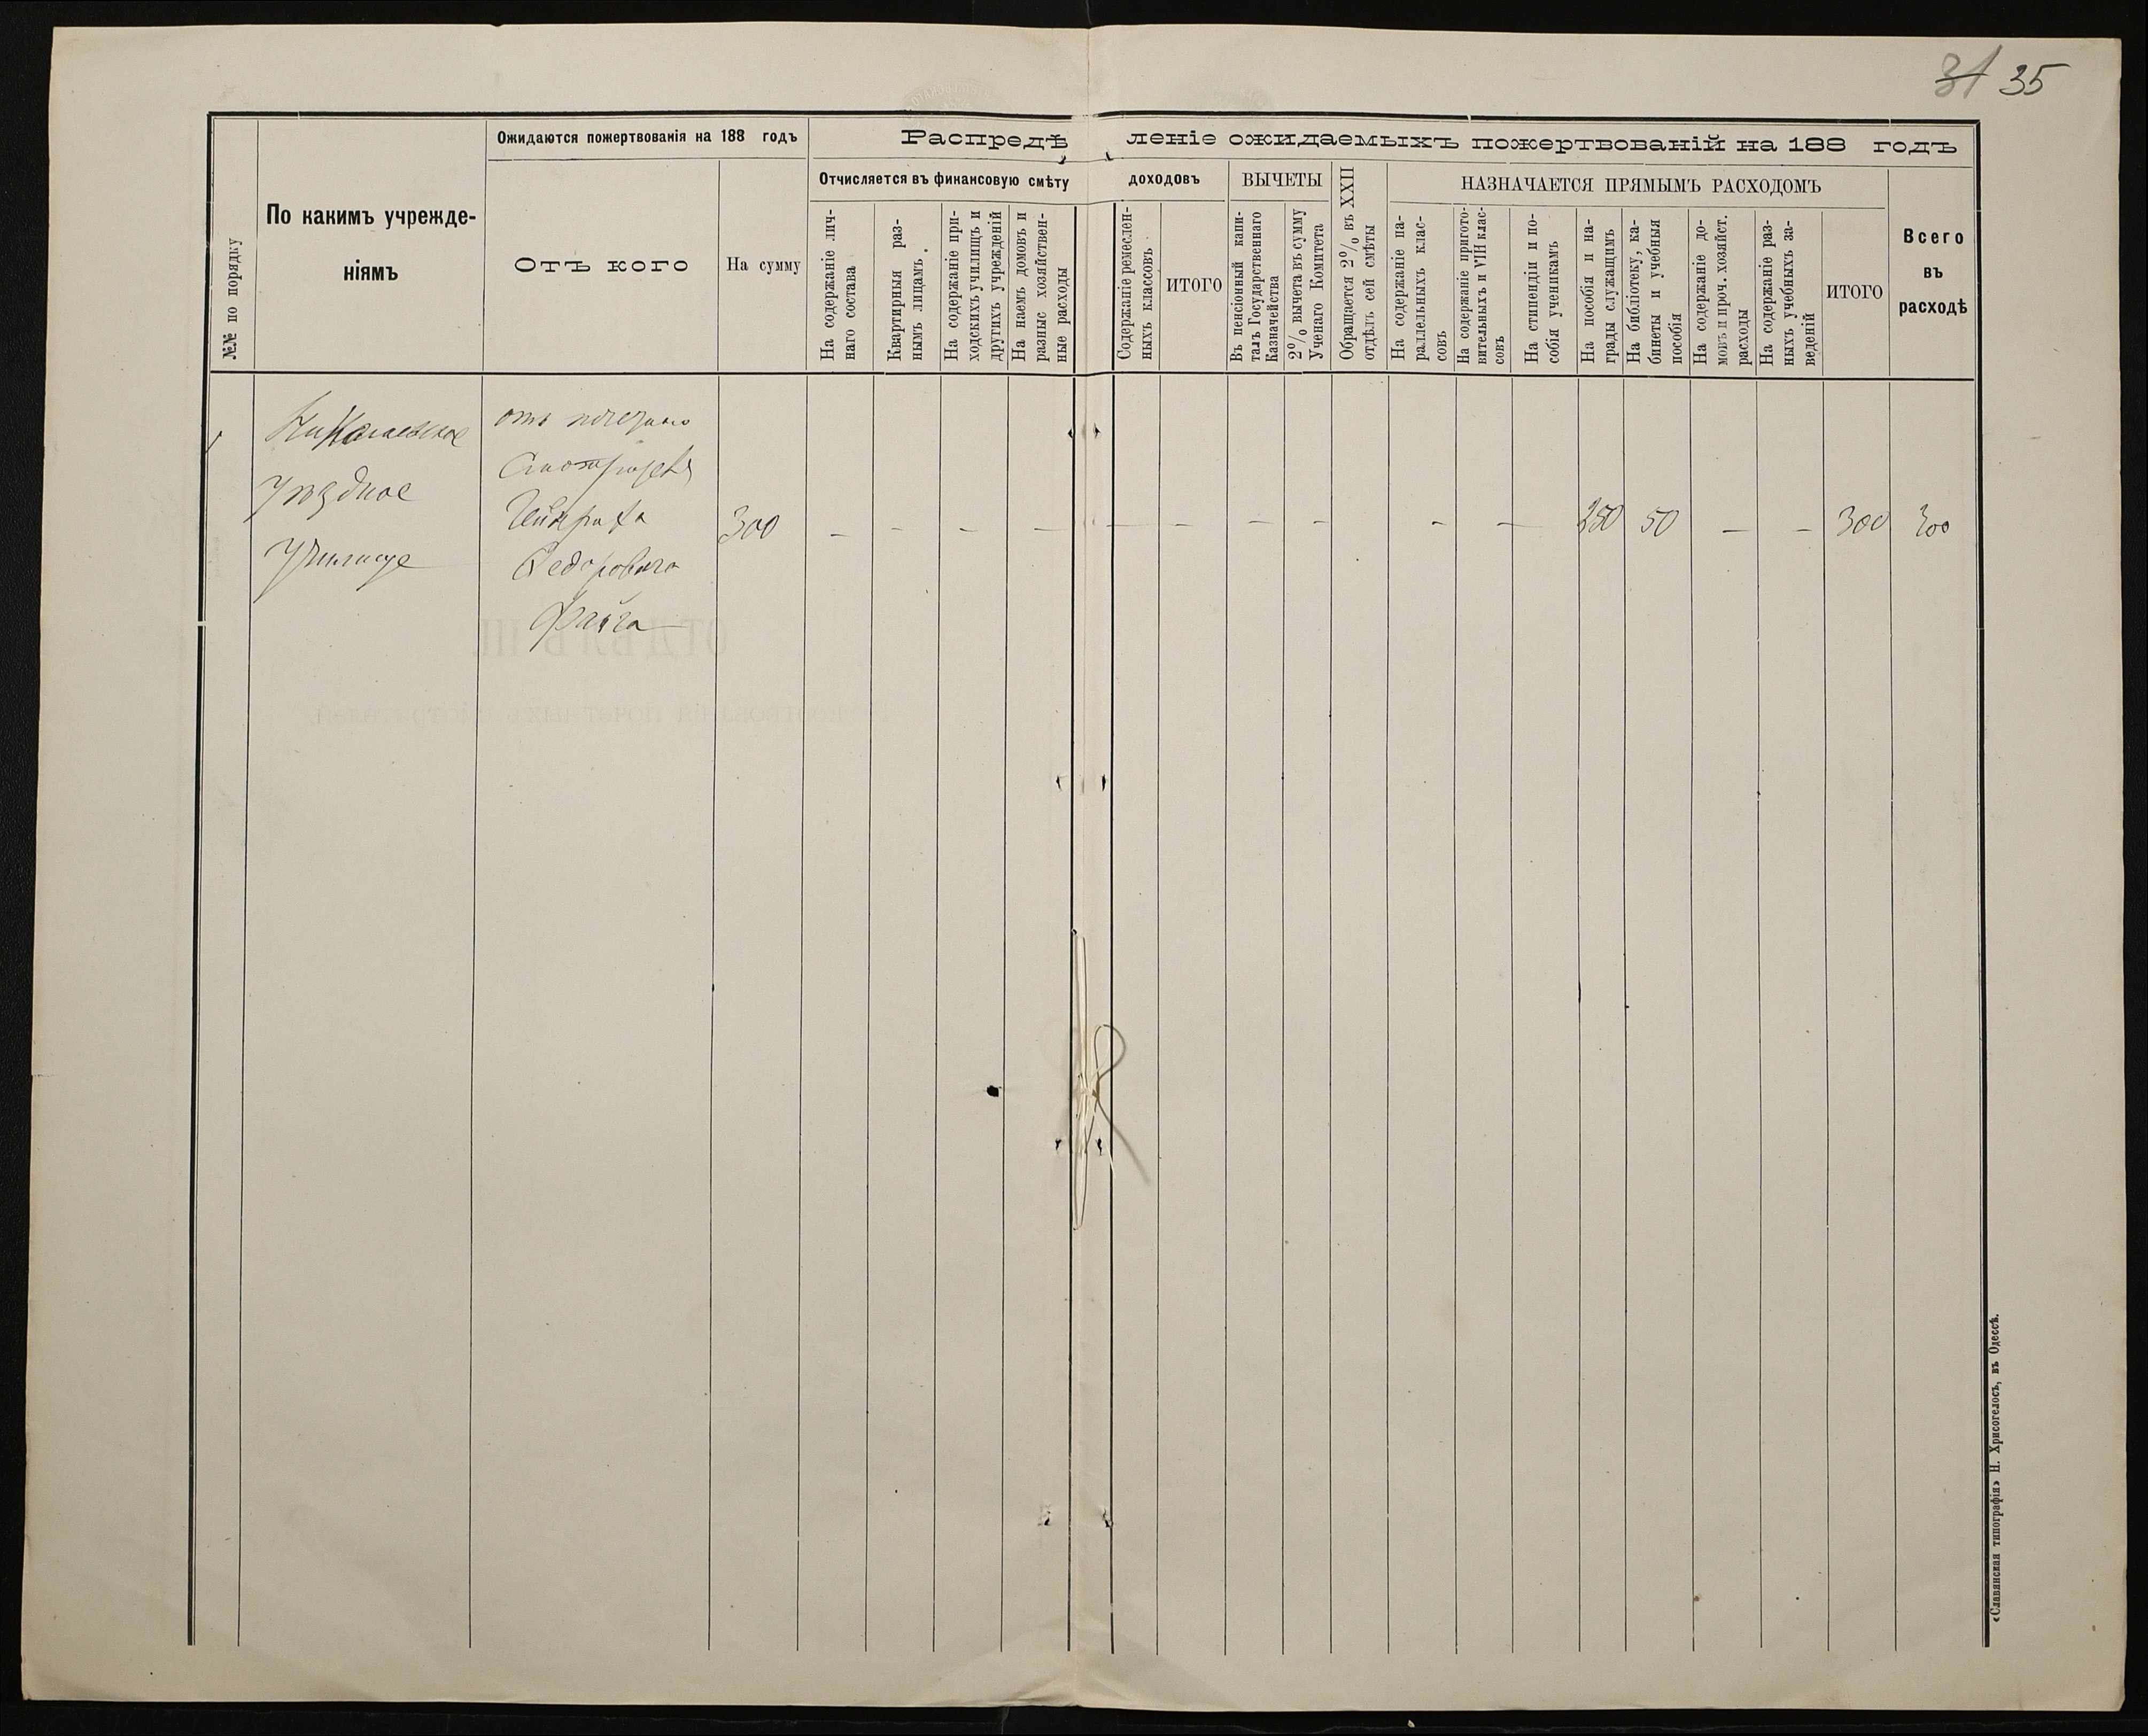 31 35
Ожидаются пожертвованія на 188 годъ
Распредѣленіе ожидаемыхъ пожертвованій на 188 годъ
№№ по порядку
По какимъ учрежде-
ніямъ
Отъ кого
На сумму
Отчисляется въ финансовую смѣту доходовъ
ВЫЧЕТЫ
НАЗНАЧАЕТСЯ ПРЯМЫМЪ РАСХОДОМЪ
На содержаніе лич-
наго состава
Квартирныя раз-
нымъ лицамъ
На содержаніе при-
ходскихъ училищъ и
другихъ учрежденій
На наемъ домовъ и
разныс хозяйствен-
ные расходы
Содержаніе ремеслен-
ныхъ классовъ
ИТОГО
Въ пенсіонный капи-
талъ Государственнаго
Казначейства
2% вычета въ сумму
Ученаго Комитета
Обращается 2% въ XXII
отдѣлъ сей смѣты
На содержаніе па-
раллельныхъ клас-
совъ
На содержаніе пригото-
вительныхъ и VIII клас-
совъ
На стипендіи и по-
собія ученикамъ
На пособія и на-
грады служащимъ
На библіотеку, ка-
бинеты и учебныя
пособія
На содержаніе до-
мовъ и проч. хозяйст.
расходы
На содержаніе раз-
ныхъ учебныхъ за-
веденій
ИТОГО
Всего
въ
расходѣ
Николаевское
Уѣздное
Училище
отъ почетнаго
Смотрителя
Гейнриха
Федоровича
Файга
300 — — — — — — — — — — 250 50 — — 300 300
«Славянская типографія» Н. Хрисогелосъ, въ Одессѣ.